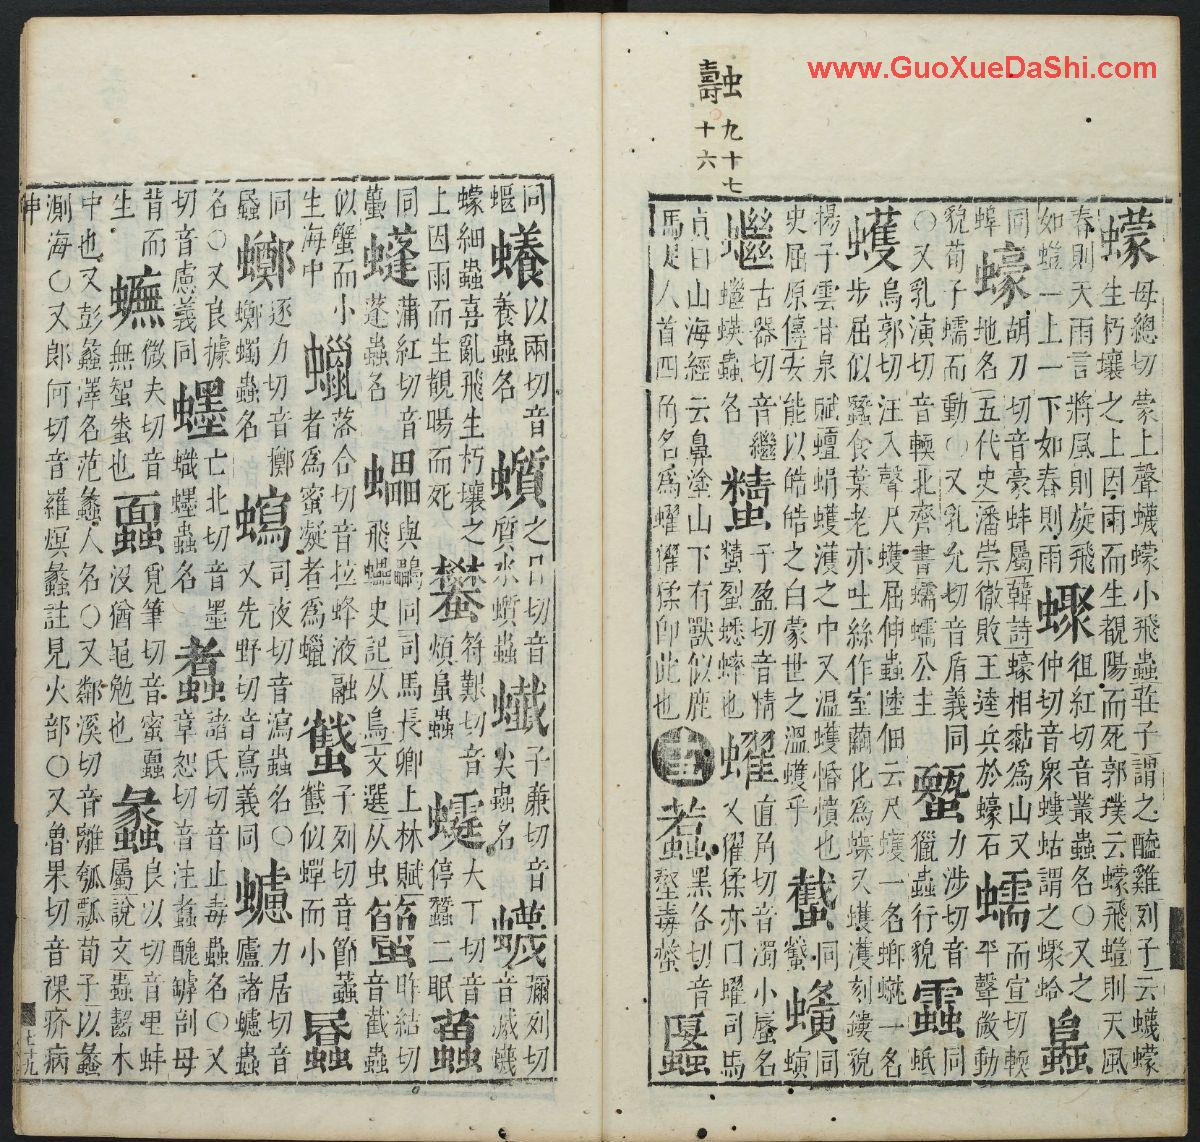 www.GuoXueDaShi.com
融 九十七
壽 十六
蠓 母總切蒙上聲蠛蠓小飛蟲莊子謂之醯雞列子云蠛蠓
生朽壤之上因雨而生覩陽而死郭璞云蠓飛蟻則天風
春則天雨言將風則旋飛 徂紅切音叢蟲名○又之
如蟻一上一下如春則雨 仲切音衆螻蛄謂之蟓蛤
同 蠔 胡刀切音豪蚌屬韓詩蠔相黏為山又 蠕 而宣切輭
蜂地名五代史潘崇徹敗王逵兵於蠔石 平聲微動
貌荀子蠕而動○又乳允切音盾義同 力涉切音 同
○又乳演切音輭北齊書蠕蠕公主 獵蟲行貌 蚔
蠖 烏郭切汪入聲尺蠖屈伸蟲陸佃云尺蠖一名蝍蝛一名
步屈似蠶食葉老亦吐絲作室繭化為蝶又蠖濩刻鏤貌
揚子雲甘泉賦蟺蜎蠖濩之中又溫蠖惛憒也 同 同
史屈原傳安能以皓皓之白蒙世之溫蠖乎 螆 螾
古器切音繼 子盈切音精 蠗 直角切音濁小蜃名
蟲名 蜻蛚蟋蟀也 又蠗猱亦曰蠗司馬
貞曰山海經云鼻塗山下有獸似鹿
馬足人首四角名為蠗蠗猱卽此也 黑各切音
螫毒螫
同 以兩切音 之日切音 子廉切音 彌列切
蝘 養蟲名 質水蟲 尖蟲名 蠛 音滅蠛
蠓細蟲喜亂飛生朽壤之 符艱切音 大丁切音
上因雨而生覩暘而死 煩蟲 停蠶二眠
同 蒲紅切音 與鸓同司馬長卿上林賦 昨結切
蓬蟲名 飛蠝史記从鳥文選从虫 音截蟲
似蟹而小 蠟 落合切音拉蜂液融 子列切音節
生海中 者為蜜凝者為蠟 似蟬而小
同 逐力切音擲 司夜切音瀉蟲名○ 力居切音
蟲名 又先野切音寫義同 廬諸蠦蟲
名○又良據 亡北切音墨 諸氏切音止毒蟲名○又
切音慮義同 蟙蟲名 章恕切音注 醜罅剖母
背而 微夫切音 覓筆切音蜜 蠡 良以切音里蚌
生 無蟹也 沒猶黽勉也 屬說文蟲齧木
中也又彭蠡澤名范蠡人名○又鄰溪切音離瓠瓢荀子以蠡
測海○又郎何切音羅煝蠡註見火部○又魯果切音裸疥病